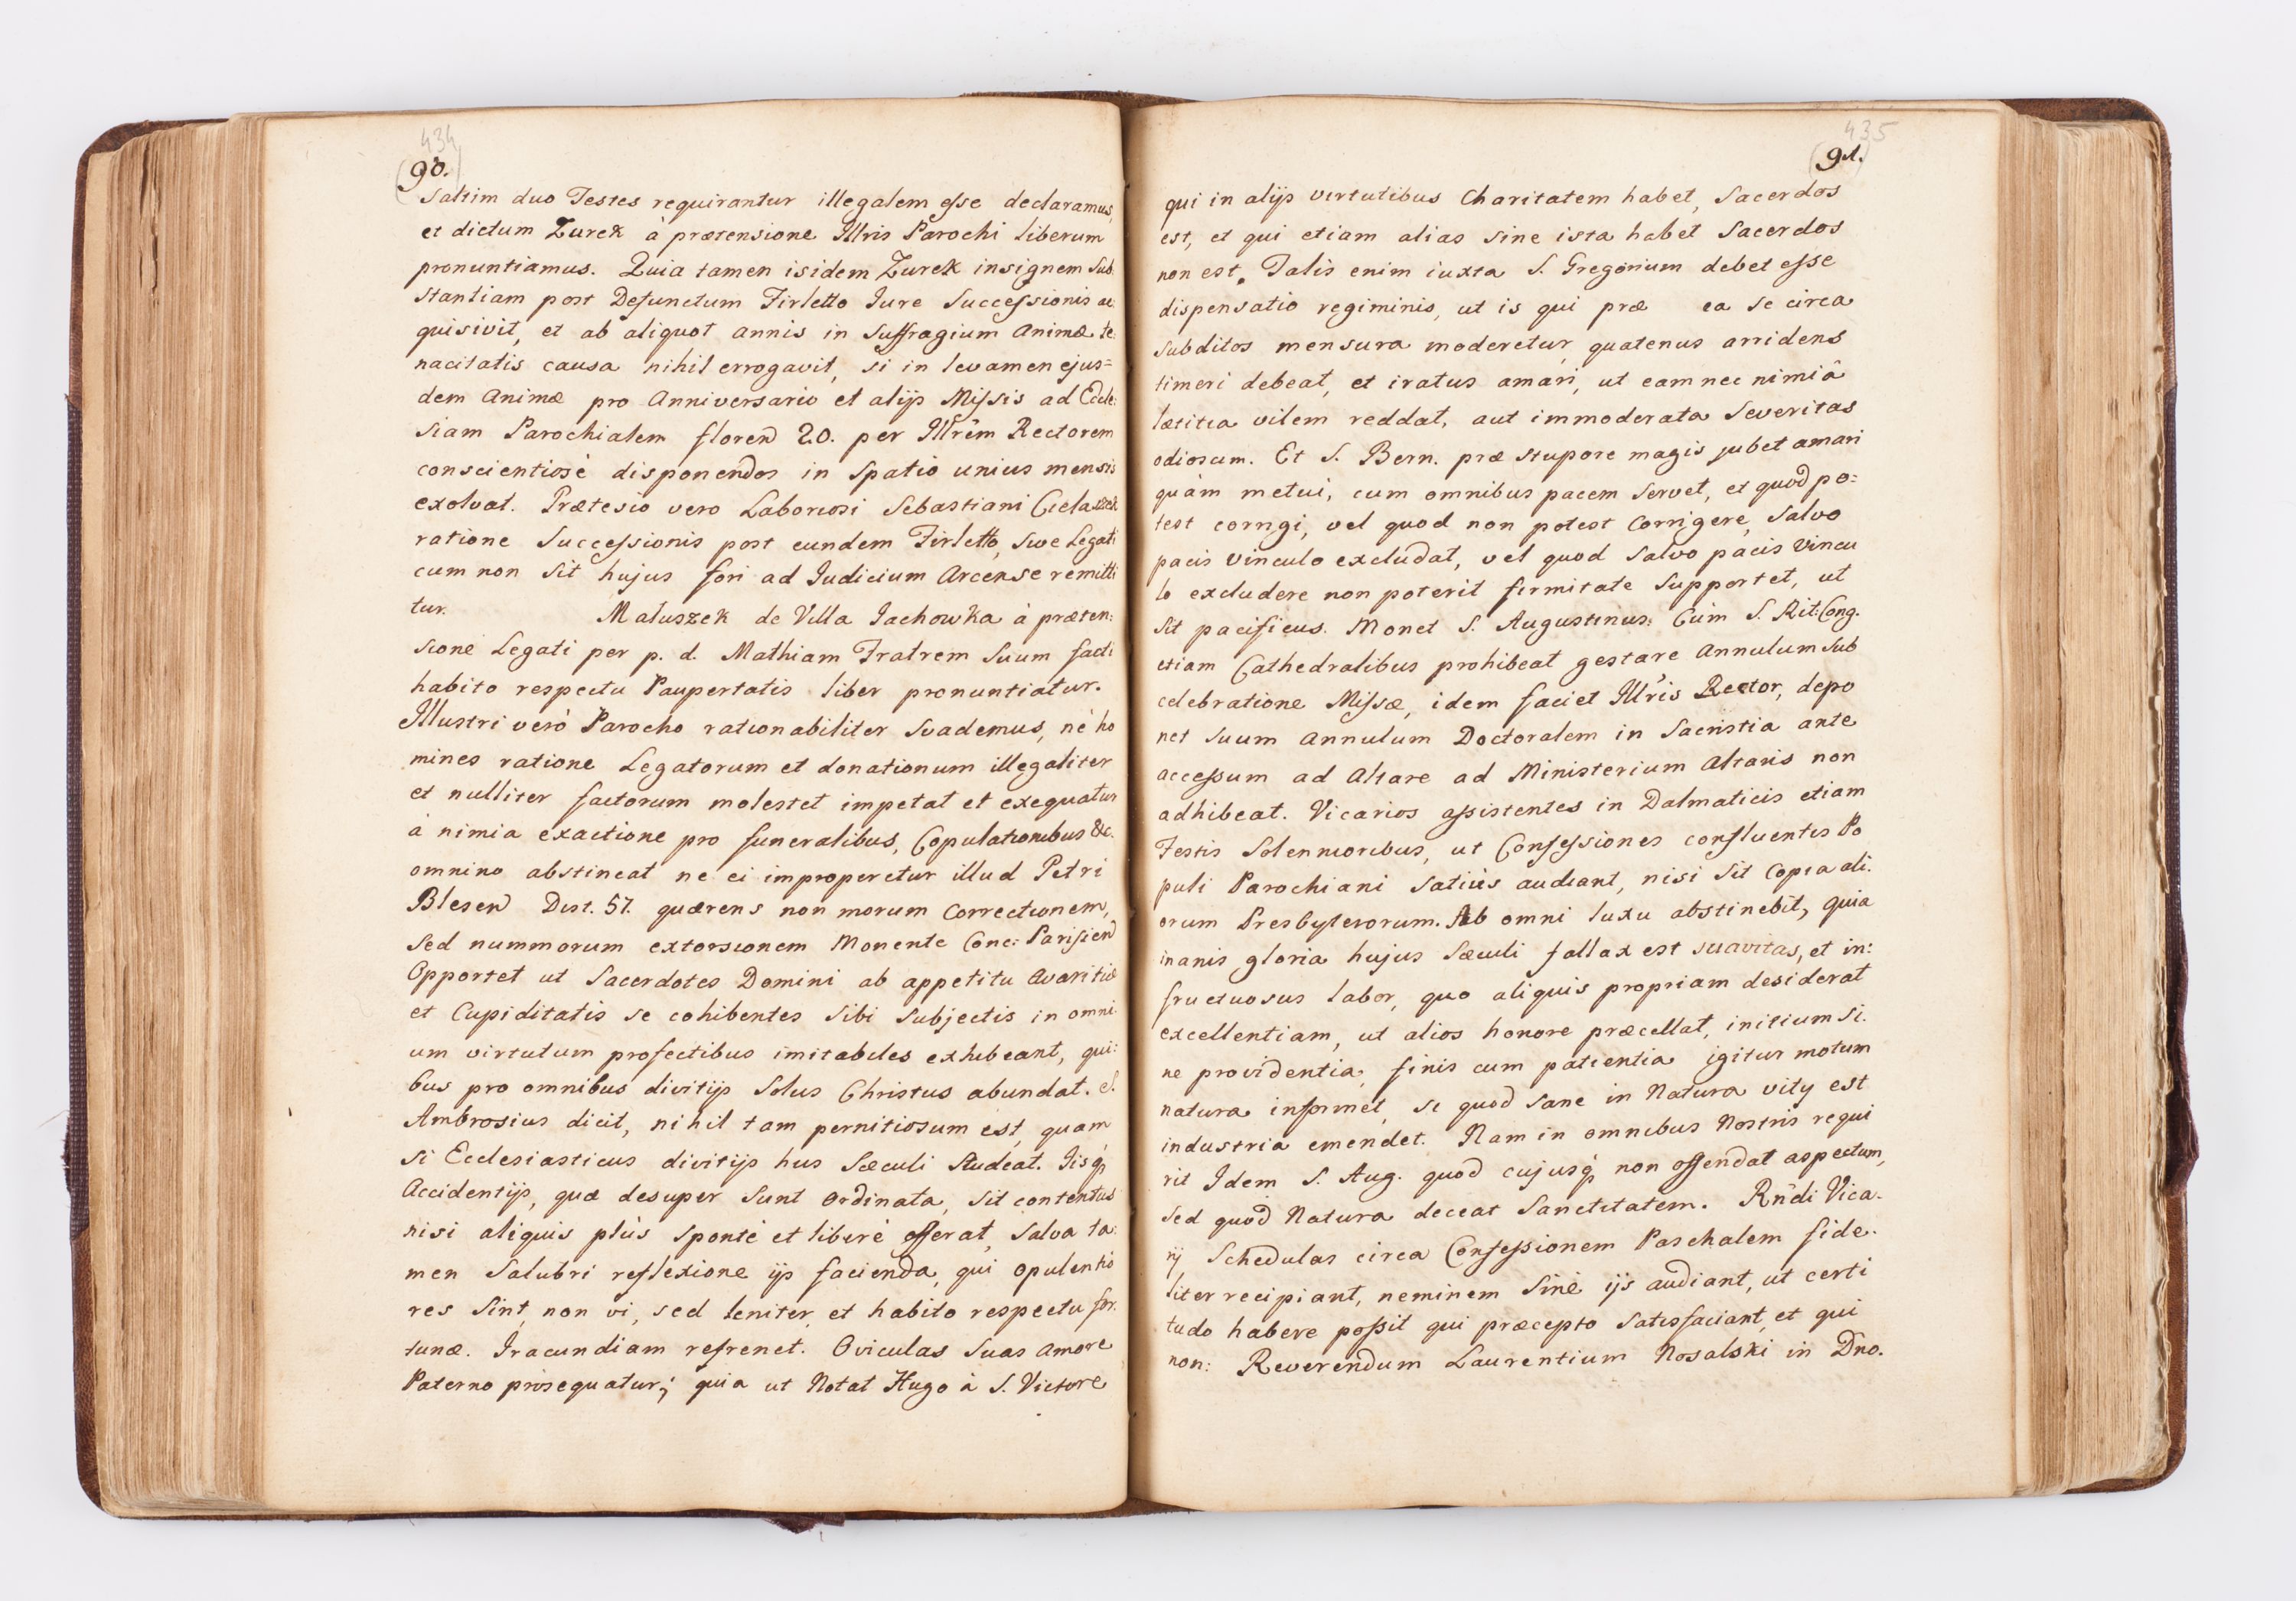 434
(90.)
Saltim duo Testes requirantur illegalem esse declaramus,
et dictum Zurek à prætensione Illris Parochi liberum
pronuntiamus. Quia tamen isidem Zurek insignem Sub
stantiam post Defunctum Firletto Jure Successionis ac
quisivit, et ab aliquot annis in Suffragium Animæ te
nacitatis causa nihil errogavit, si in levamen ejus=
dem Animæ pro Anniversario et alijs Missis ad Eccle:
siam Parochialem floren 20. per Illrem Rectorem
conscientiosè disponendos in Spatio unius mensis
exolvat. Prætesio vero Laboriosi Sebastiani
ratione Successionis post eundem Firletto, sive Legati
cum non Sit hujus fori ad Judicium Arcense remitti
tur. Matuszek de Villa Jachowka à præten:
sione Legati per p. d. Mathiam Fratrem Suum facti
habito respectu Paupertatis liber pronuntiatur.
Illustri verò Parocho rationabiliter Svademus, nè ho
mines ratione Legatorum et donationum illegaliter
et nulliter factorum molestet impetat et exequatur
à nimia exactione pro funeralibus, Copulationibus &c.
omnino abstineat ne ei improperetur illud Petri
Blesen Dist. 57. quærens non morum Correctionem,
Sed nummorum extorsionem Monente Conc: Parisien
Opportet ut Sacerdotes Domini ab appetitu Avaritiæ
et Cupiditatis se cohibentes Sibi Subjectis in omni
um virtutum profectibus imitabiles exhibeant, qui:
bus pro omnibus divitijs Solus Christus abundat. S.
Ambrosius dicit, nihil tam pernitiosum est, quam
Si Ecclesiasticus divitijs hus Sæculi Studeat. Iisq
Accidentijs, quæ desuper Sunt ordinata, Sit contentus
nisi aliquis plùs Spontè et liberè offerat, Salva ta:
men Salubri reflexione ijs facienda, qui opulentio
res Sint, non vi, sed leniter, et habito respectu for:
tunæ. Iracundiam refrenet. Oviculas Suas Amore
Paterno prosequatur; quia ut Notat Hugo à S. Victore
435
(91.)
qui in alijs virtutibus Charitatem habet, Sacerdos
est, et qui etiam alias Sine ista habet Sacerdos
non est. Talis enim iuxta S. Gregorium debet esse
dispensatio regiminis, ut is qui præ ea se circa
Subditos mensura moderetur, quatenus arridens
timeri debeat, et iratus amari, ut eam nec nimiâ
lætitia vilem reddat, aut immoderata Severitas
odiosam. Et S. Bern. præ stupore magis jubet amari
quàm metui, cum omnibus pacem Servet, et quod po=
test corrigi, vel quod non potest Corrigere, Salvo
pacis vinculo excludat, vel quod Salvo pacis Vincu
lo excludere non poterit firmitate Supportet, ut
Sit pacificus. Monet S. Augustinus: Cùm S. Rit: Cong.
etiam Cathedralibus prohibeat gestare Annulum Sub
celebratione Missæ, idem faciet Illris Rector, depo
net Suum Annulum Doctoralem in Sacristia ante
accessum ad Altare ad Ministerium Altaris non
adhibeat. Vicarios assistentes in Dalmaticis etiam
Festis Solennioribus, ut Confessiones confluentis Po
puli Parochiani Satiùs audiant, nisi Sit Copia ali:
orum Presbyterorum. Ab omni luxu abstinebit, quia
inanis gloria hujus Sæculi fallax est suavitas, et in:
fructuosus labor, quo aliquis propriam desiderat
excellentiam, ut alios honore præcellat, initium Si.
ne providentia, finis cum patientia igitur motum
natura informet, si quod sane in Natura vity est
industria emendet. Nam in omnibus Nostris requi
rit Idem S. Aug. quod cujusq non offendat aspectum,
Sed quod Natura deceat Sanctitatem. Rndi Vica.
rij Schedulas circa Confessionem Paschalem fide.
liter recipiant, neminem Sinè ijs audiant, ut certi
tudo habere possit qui præcepto Satisfaciant, et qui
non: Reverendum Laurentium Nosalski in Dno.